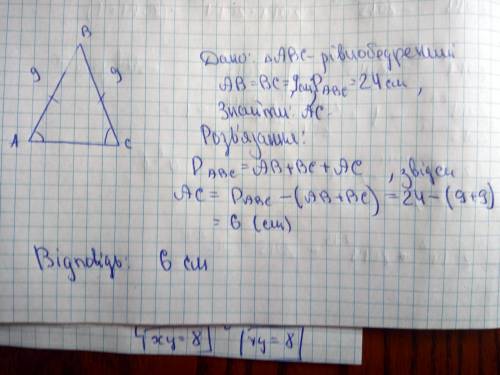 B
9 9
A C
Дано: △ABC - рівнобедрений
AB = BC = 9см, P_ABC = 24 см,
Знайти: AC.
Розв'язання:
P_ABC = AB + BC + AC, звідси
AC = P_ABC - (AB + BC) = 24 - (9+9)
= 6 (см)
Відповідь: 6 см
xy = 8